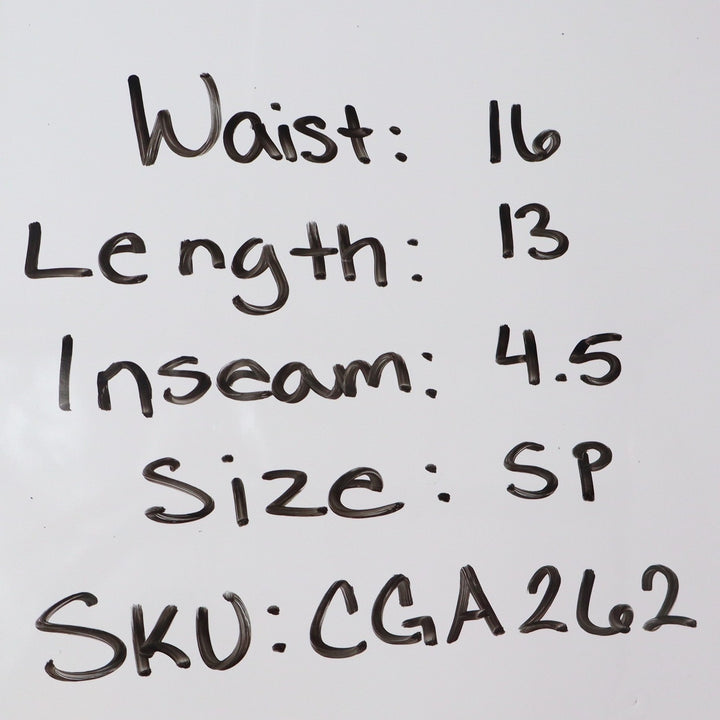 Waist: 16
Length: 13
Inseam: 4.5
Size: SP
SKU: CGA262